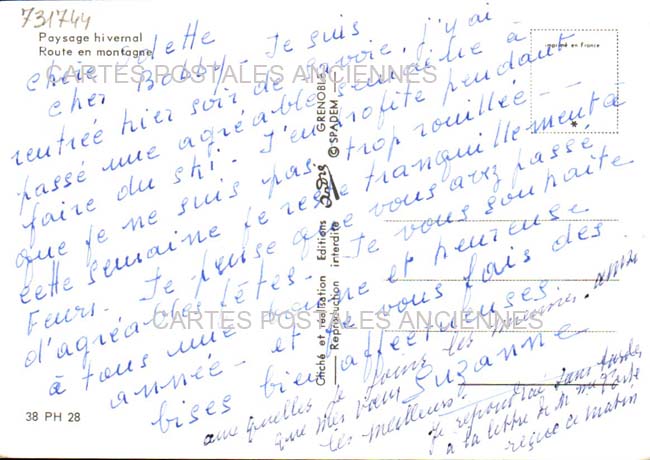 731744
Paysage hivernal
Route en montagne
imprimé en France
Chère Colette
Cher Bobby. Je suis
rentrée hier soir de Savoie, j'y ai
passé une agréable semaine à
faire du ski. J'en profite pendant
que je ne suis pas trop rouillée --
cette semaine je reste tranquillement à
Feurs. Je pense que vous avez passé
d'agréables fêtes. Je vous souhaite
à tous une bonne et heureuse
année - et je vous fais des
bises bien affectueuses.
Suzanne
auxquelles je joins les miennes
que mes vœux
les meilleurs!
Je répondrai sans tarder
à la lettre de
reçue ce matin
CARTES POSTALES ANCIENNES
CARTES POSTALES ANCIENNES
Cliché et réalisation Editions André GRENOBLE
Reproduction interdite © SPADEM
38 PH 28